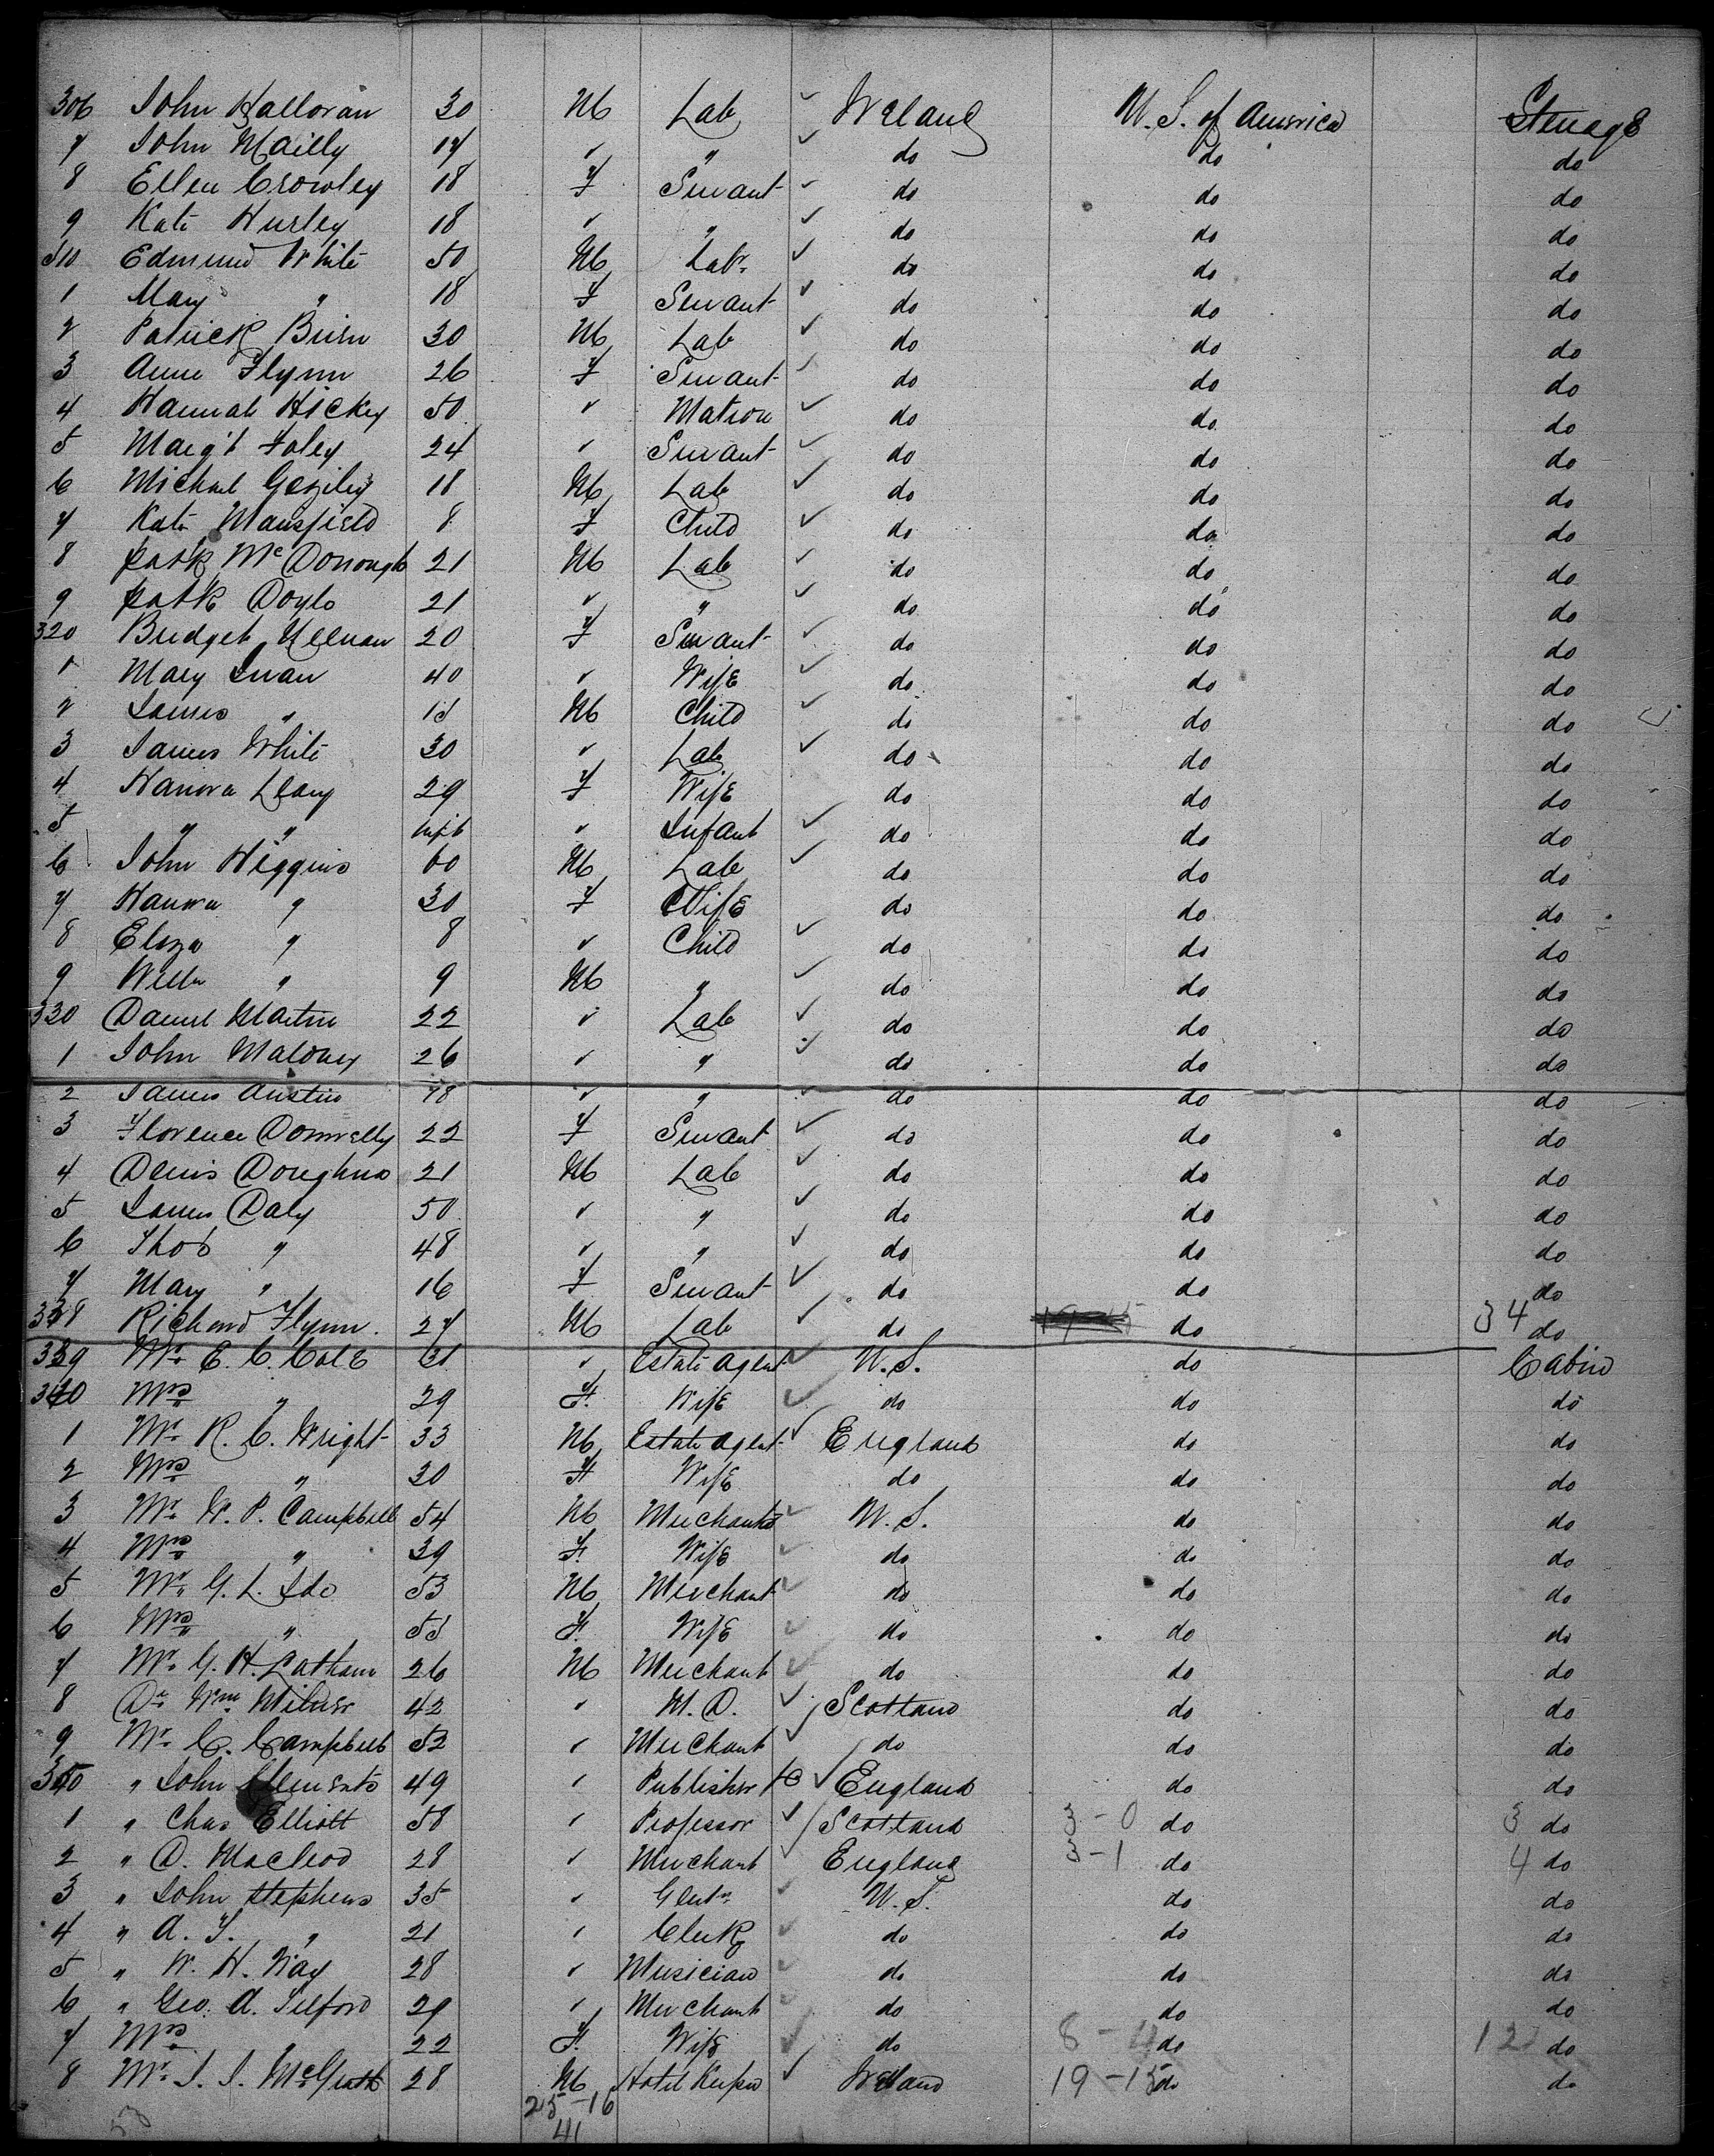 306 John Halloran 30 M Lab Ireland U.S. of America Steerage
7 John Mailly 17 " " do do do
8 Ellen Crowley 18 F Servant do do do
9 Kate Hurley 18 " " do do do
310 Edmund White 50 M Labr do do do
1 Mary " 18 F Servant do do do
2 Patrick 30 M Lab do do do
3 Anne Flynn 26 F Servant do do do
4 Hannah Hickey 50 " Matron do do do
5 Marg't Foley 24 " Servant do do do
6 Michael 18 M Lab do do do
7 Kate Mansfield 8 F Child do do do
8 Patk McDonough 21 M Lab do do do
9 Patk Doyle 21 " " do do do
320 Bridget 20 F Servant do do do
1 Mary 40 " Wife do do do
2 James " M Child do do do
3 James White 30 " Lab do do do
4 Hanora Leary 29 F Wife do do do
5 " " inft " Infant do do do
6 John Higgins 60 M Lab do do do
7 Hanora " 30 F Wife do do do
8 Eliza " 8 " Child do do do
9 Willm " 9 M " do do do
330 Daniel Martin 22 " Lab do do do
1 John Maloney 26 " " do do do
2 James Austin " " do do do
3 Florence Donnelly 22 F Servant do do do
4 Denis Donghue 21 M Lab do do do
5 James Daly 50 " " do do do
6 Thos " 48 " " do do do
7 Mary " 16 F Servant do do do
338 Richard Flynn 27 M Lab do do 34 do
339 Mr E. C. Cole 31 " Estate Agent U.S. do Cabin
340 Mrs " 29 F Wife do do do
1 Mr R. C. Wright 33 M Estate Agent England do do
2 Mrs " 30 F Wife do do do
3 Mr W. P. Campbell 54 M Merchant U.S. do do
4 Mrs " 39 F Wife do do do
5 Mr G. L. Ide 53 M Merchant do do do
6 Mrs " F Wife do do do
7 Mr G. H. Latham 26 M Merchant do do do
8 Dr Wm Milner 42 " M.D. Scotland do do
9 Mr C. Campbell 52 " Merchant do do do
350 " John Clements 49 " Publisher England do do
1 " Chas Elliott 58 " Professor Scotland 3-0 do 3 do
2 " D. Macleod 28 " Merchant England 3-1 do 4 do
3 " John Stephens 35 " Gentn U.S. do do
4 " A. T. " 21 " Clerk do do do
5 " W. H. Way 28 " Musician do do do
6 " Geo. A. Telford 29 " Merchant do do do
7 Mrs 22 F Wife do 8-4 do 12 do
8 Mr J. J. McGrath 28 M Hotel Keeper Ireland 19-15 do do
25-16
41